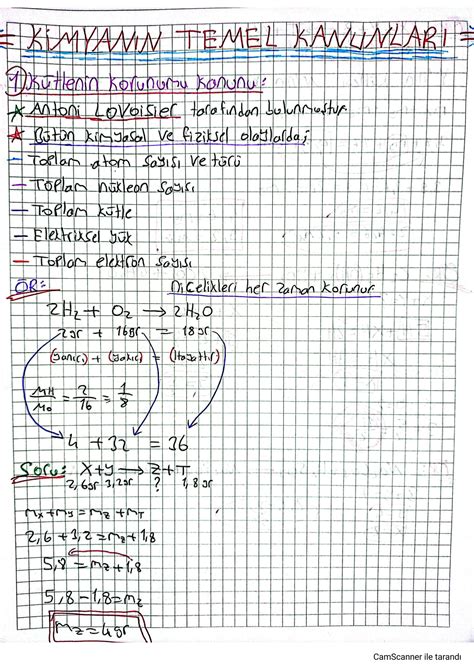 = KİMYANIN TEMEL KANUNLARI =
1) Kütlenin Korunumu Kanunu:
★ Antoni Lovoisier tarafından bulunmuştur
★ Bütün kimyasal ve fiziksel olaylarda;
– Toplam atom sayısı ve türü
– Toplam nükleon sayısı
– Toplam kütle
– Elektriksel yük
– Toplam elektron sayısı
ÖR: Nicelikleri her zaman korunur
2H₂ + O₂ → 2H₂O
2gr + 16gr → = 18gr
(yanıcı) + (yakıcı) =
MH/MO = 2/16 = 1/8
4 + 32 = 36
Soru: X+Y → Z+T
2,6gr 3,2gr ? 1,8gr
mx+my=mz+mT
2,6+3,2=mz+1,8
5,8=mz+1,8
5,8-1,8=mz
mz=4gr
CamScanner ile tarandı